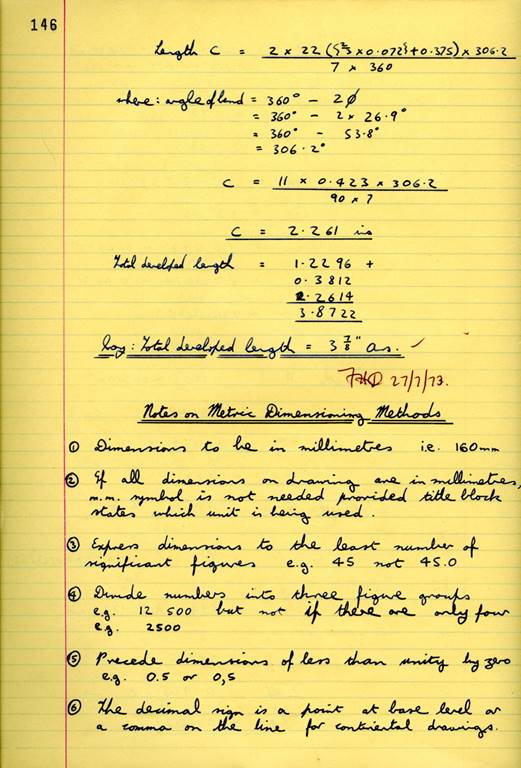 146
Length C = 2 x 22 ({⅔ x 0.072} + 0.375) x 306.2
7 x 360
where: angle of bend = 360° - 2Ø
= 360° - 2 x 26.9°
= 360° - 53.8°
= 306.2°
C = 11 x 0.423 x 306.2
90 x 7
C = 2.261 in
Total develped length = 1.2296 +
0.3812
2.2614
3.8722
Say: Total developed length = 3 7/8"
27/7/73.
Notes on Metric Dimensioning Methods
① Dimensions to be in millimetres i.e. 160mm
② If all dimensions on drawing are in millimetres,
m.m. symbol is not needed provided title block
states which unit is being used.
③ Express dimensions to the least number of
significant figures e.g. 45 not 45.0
④ Divide numbers into three figure groups
e.g. 12 500 but not if there are only four
e.g. 2500
⑤ Precede dimensions of less than unity by zero
e.g. 0.5 or 0,5
⑥ The decimal sign is a point at base level or
a comma on the line for continental drawings.